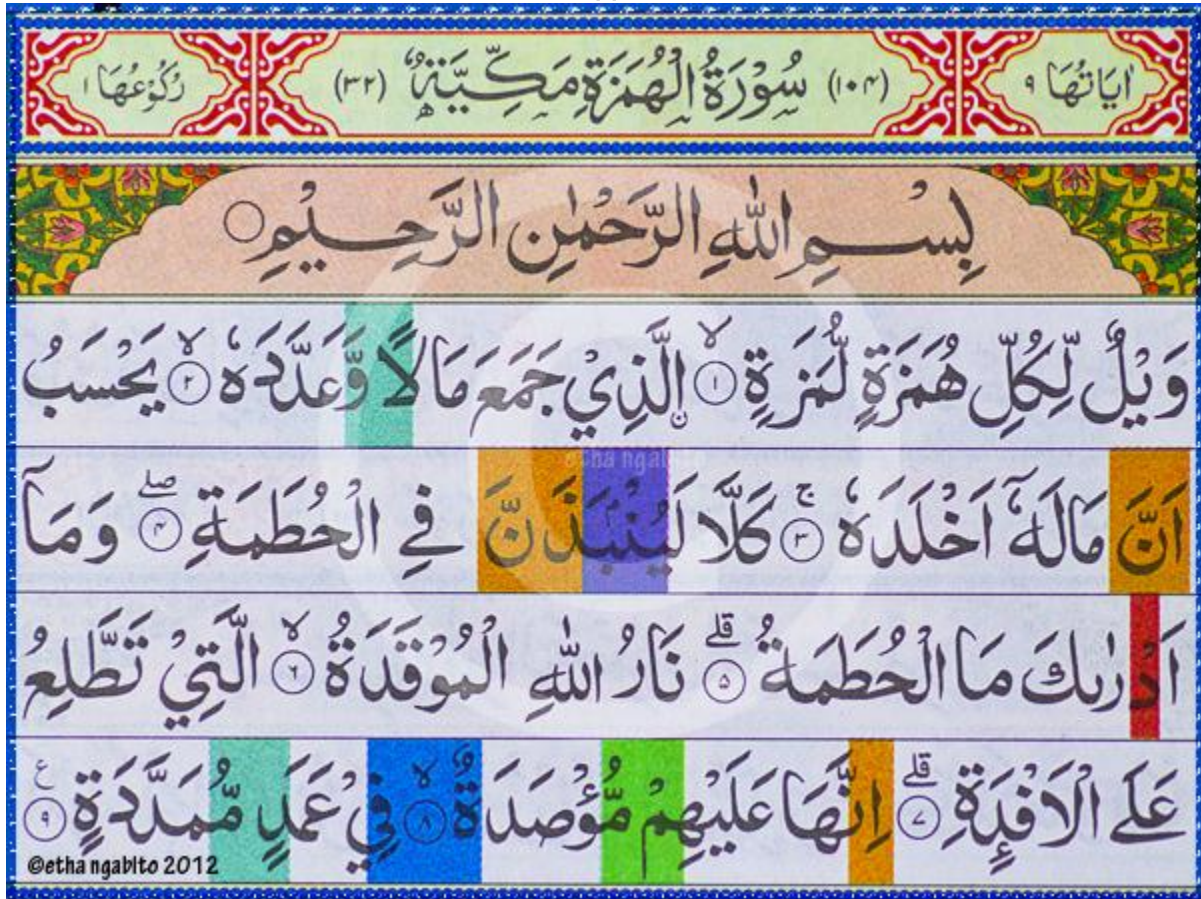 اٰيَاتُهَا ٩ (١٠٤) سُوْرَةُ الْهُمَزَةِ مَكِّيَّةٌ (٣٢) رُكُوْعُهَا ١
بِسْمِ اللّٰهِ الرَّحْمٰنِ الرَّحِيْمِ
وَيْلٌ لِّكُلِّ هُمَزَةٍ لُّمَزَةٍ ۙ ١ اِۨلَّذِيْ جَمَعَ مَالًا وَّعَدَّدَهٗ ۙ ٢ يَحْسَبُ
اَنَّ مَالَهٗٓ اَخْلَدَهٗ ۚ ٣ كَلَّا لَيُنْۢبَذَنَّ فِي الْحُطَمَةِ ۖ ٤ وَمَآ
اَدْرٰىكَ مَا الْحُطَمَةُ ۗ ٥ نَارُ اللّٰهِ الْمُوْقَدَةُ ۙ ٦ الَّتِيْ تَطَّلِعُ
عَلَى الْاَفْـِٕدَةِ ۗ ٧ اِنَّهَا عَلَيْهِمْ مُّؤْصَدَةٌ ۙ ٨ فِيْ عَمَدٍ مُّمَدَّدَةٍ ࣖ ٩
©etha ngabito 2012